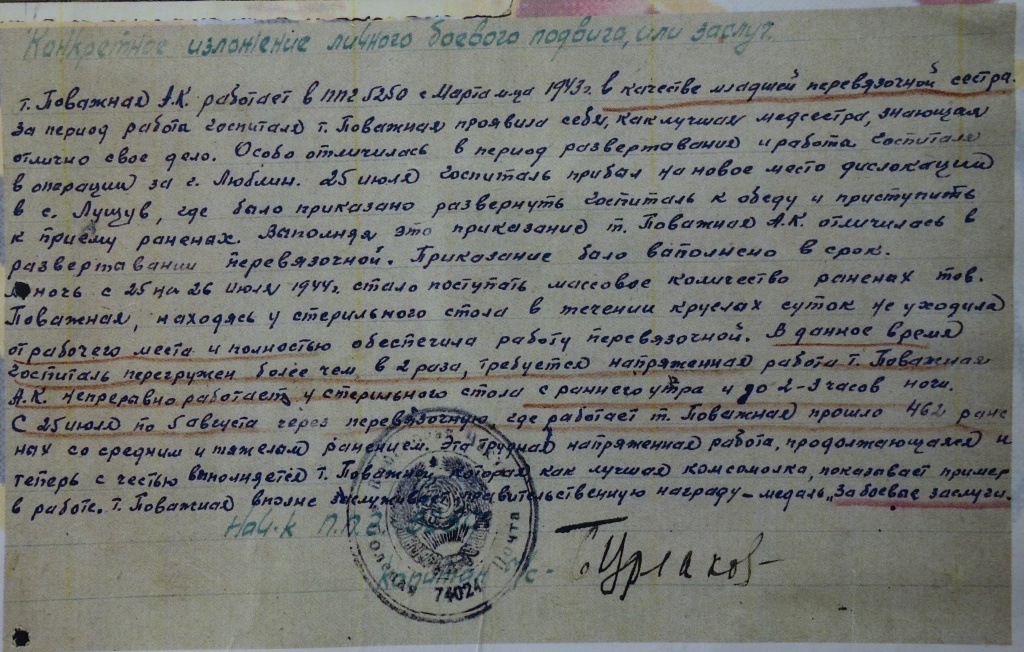 Конкретное изложение личного боевого подвига, или заслуг.
т. Поважная А.К. работает в ППГ 5250 с Марта м-ца 1943г. в качестве младшей перевязочной сестра.
За период работа госпиталя т. Поважная проявила себя, как лучшая медсестра, знающая
отлично свое дело. Особо отличилась в период развертавания и работа госпиталя
в операции за г. Люблин. 25 июля госпиталь прибал на новое место дислокации
в с. Лущув, где было приказано развернуть госпиталь к обеду и приступить
к приему раненах. Выполняя это приказание т. Поважная А.К. отличилась в
развертавании перевязочной. Приказание бало ваполнено в срок.
ночь с 25 на 26 июля 1944г. стало поступать массовое количество раненах тов.
Поважная, находясь у стерильного стола в течении круглах суток не уходила
от рабочего места и полностью обеспечила работу перевязочной. В данное время
госпиталь перегружен более чем в 2 раза, требуется напряженная работа. т. Поважная
А.К. непреравно работает у стерильного стола с раннего утра и до 2-3 часов ночи.
С 25 июля по 5 августа через перевязочную где работает т. Поважная прошло 462 ране
нах со средним и тяжелам ранением. Эта трудная напряженная работа, продолжающаяся и
теперь с честью выполняется т. Поважной, которая как лучшая комсомолка, показывает пример
в работе. т. Поважная вполне заслуживает правительственную награду – медаль „За боевые заслуги.
Нач-к П.П.Г.
капитан м/с-
Полевая Почта 74024